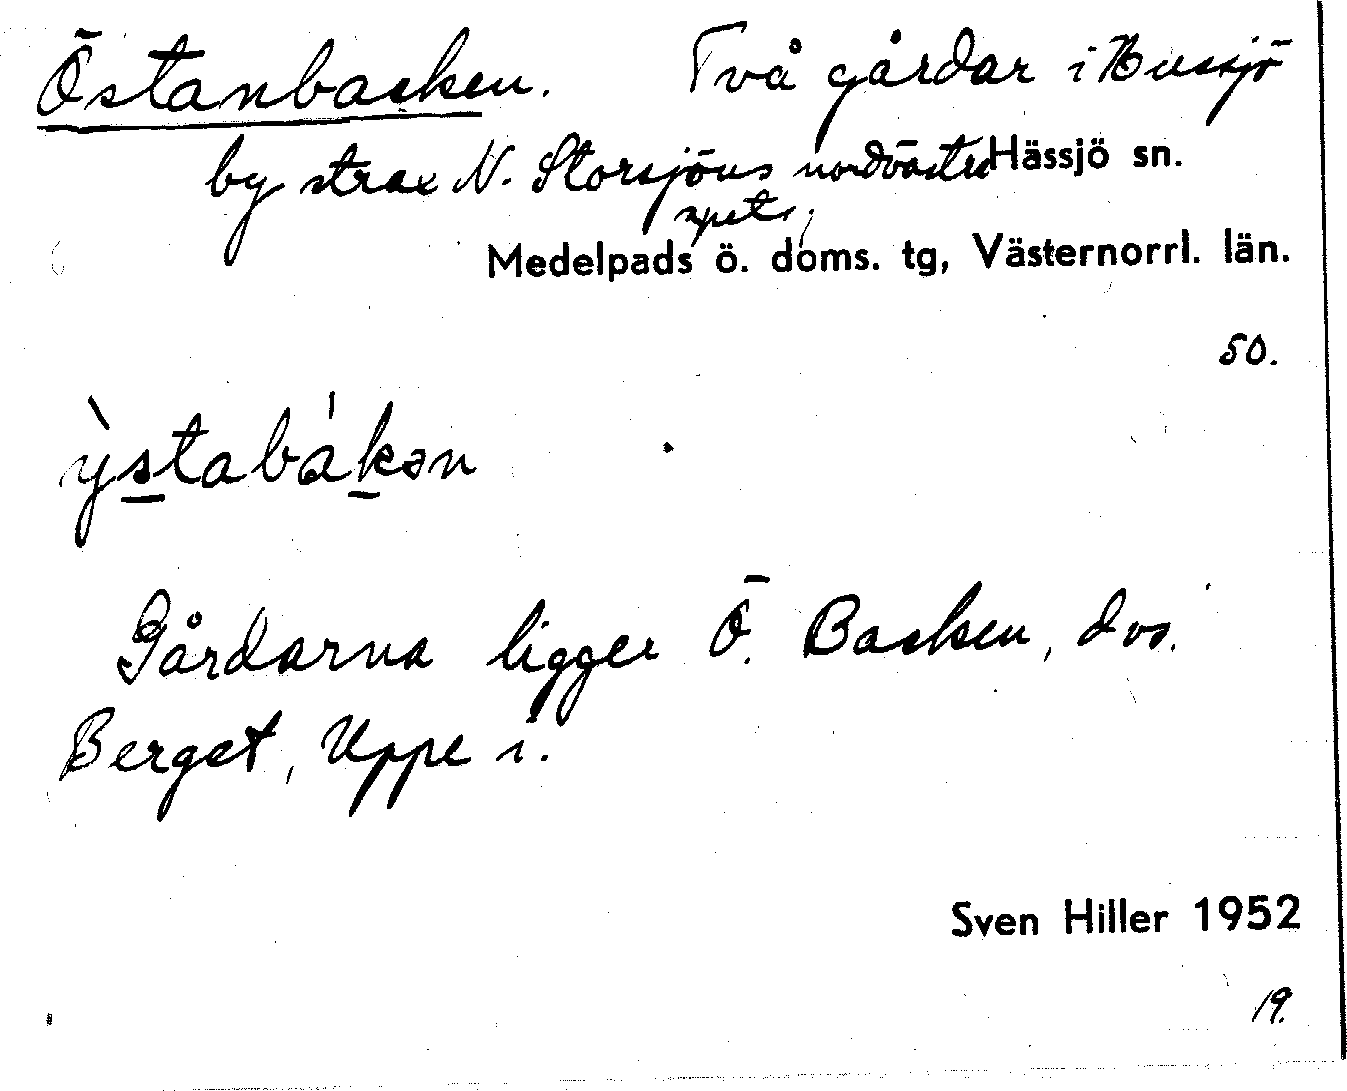 Östanbacken. Två gårdar i Hussjö
by strax N. Storsjöns nordvästra Hässjö sn.
spets.
Medelpads ö. doms. tg, Västernorrl. län.
50.
ỳstabákən
Gårdarna ligger Ö. Backen, dvs.
Berget, Uppe i.
Sven Hiller 1952
19.